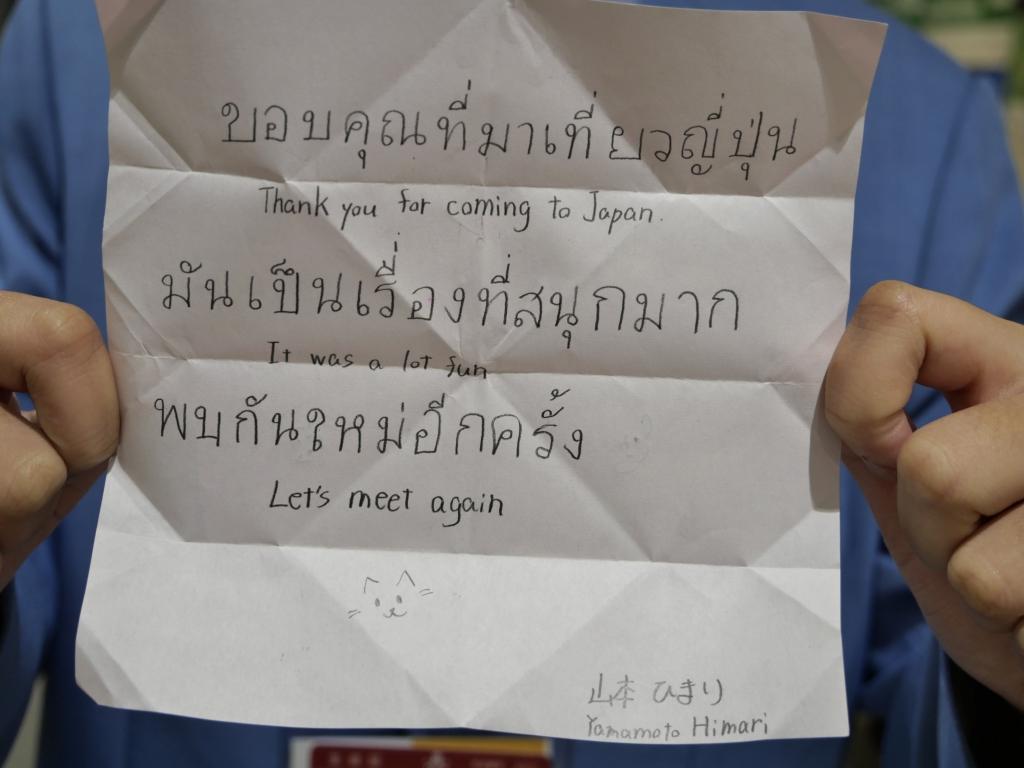 ขอบคุณที่มาเที่ยวญี่ปุ่น
Thank you for coming to Japan.
มันเป็นเรื่องที่สนุกมาก
It was a lot fun
พบกันใหม่อีกครั้ง
Let's meet again
山本 ひまり
Yamamoto Himari